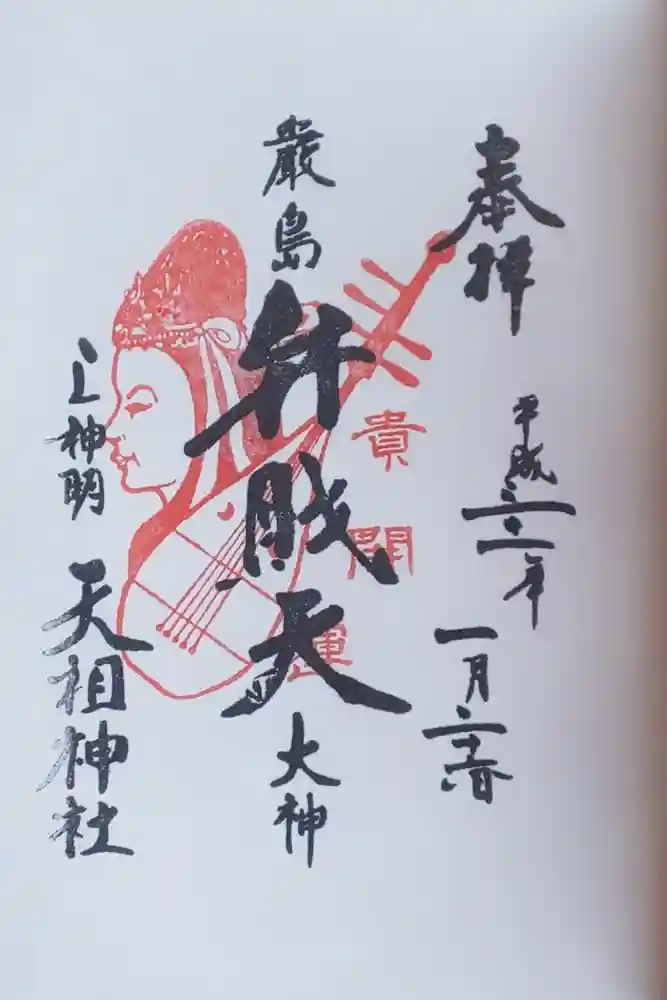 奉拝
平成三十一年
一月二十日
厳島
弁財天
大神
貴開運
上神明
天祖神社